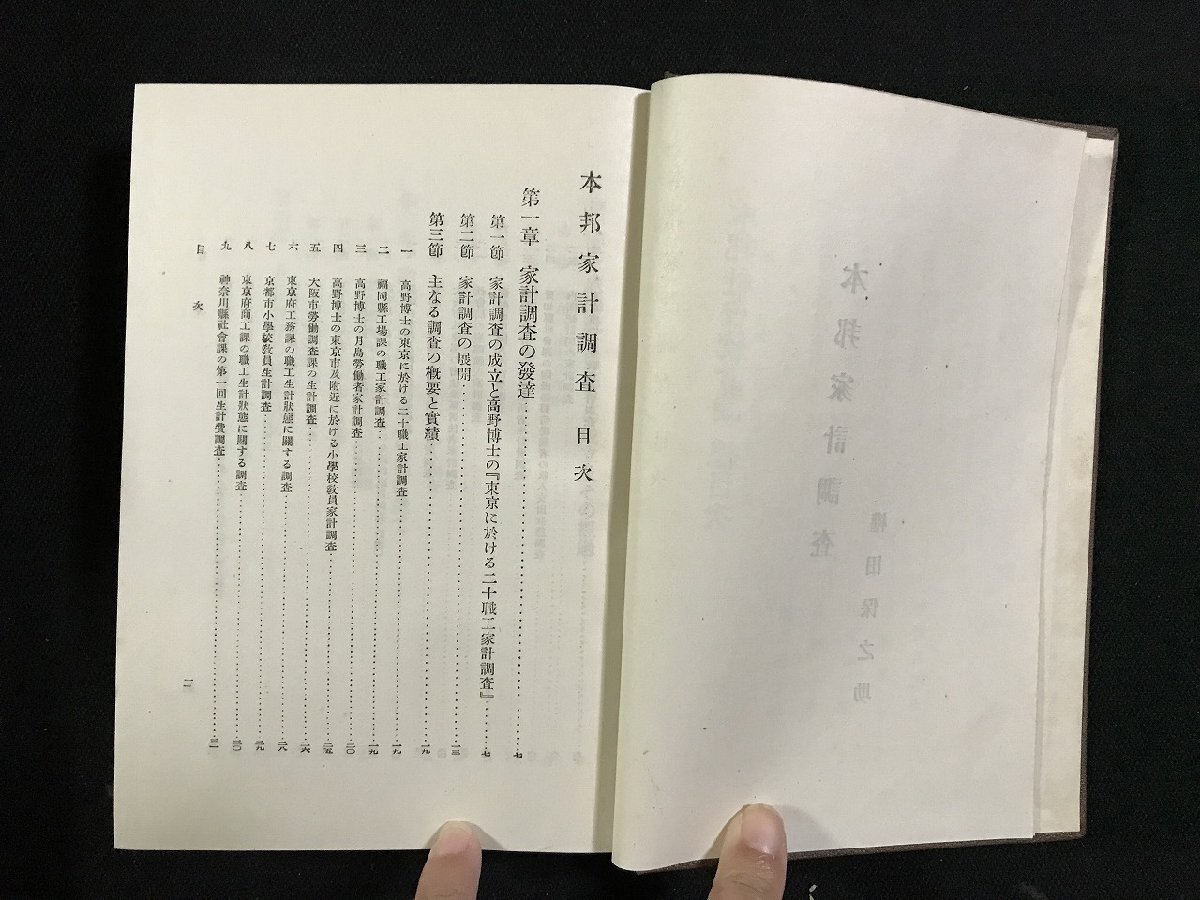 本邦家計調査
權田保之助
本邦家計調査目次
第一章 家計調査の發達……七
第一節 家計調査の成立と高野博士の『東京に於ける二十職工家計調査』……七
第二節 家計調査の展開……一三
第三節 主なる調査の概要と實績……一九
一 高野博士の東京に於ける二十職工家計調査……一九
二 福岡縣工場課の職工家計調査……一九
三 高野博士の月島勞働者家計調査……二〇
四 高野博士の東京市及附近に於ける小學校教員家計調査……二五
五 大阪市勞働調査課の生計調査……二六
六 東京府工務課の職工生計狀態に關する調査……二八
七 京都市小學校教員生計調査……二九
八 東京府商工課の職工生計狀態に關する調査……三〇
九 神奈川縣社會課の第一回生計費調査……三一
目次